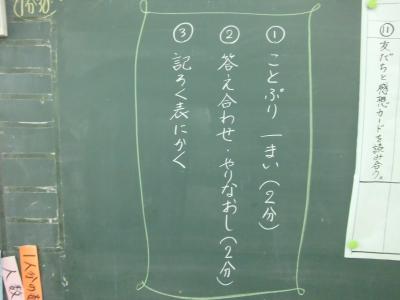 ⑪ 友だちと感想カードを読み合う。
① ことぷり 一まい(2分)
② 答え合わせ・やりなおし(2分)
③ 記ろく表にかく